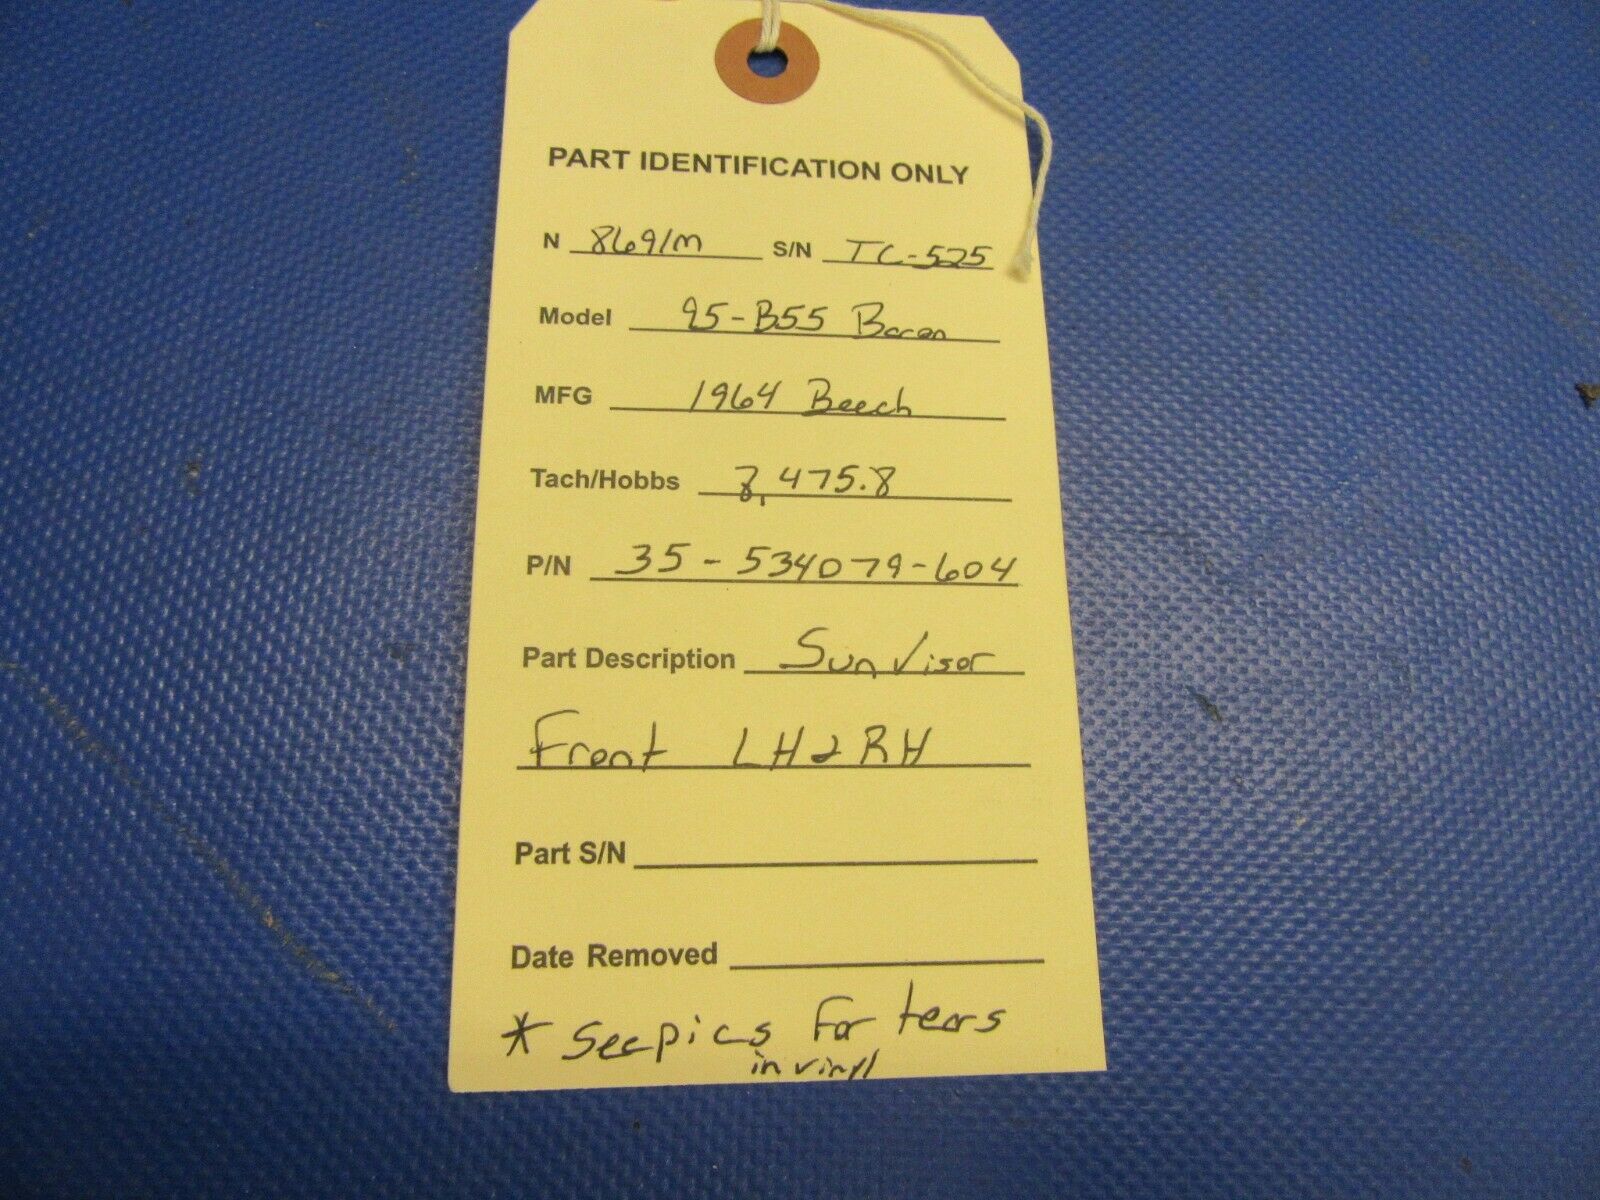 PART IDENTIFICATION ONLY
N 8691M S/N TC-525
Model 95-B55 Baron
MFG 1964 Beech
Tach/Hobbs 8,475.8
P/N 35-534079-604
Part Description Sun Visor
Front LH & RH
Part S/N
Date Removed
* See pics for tears
in vinyl